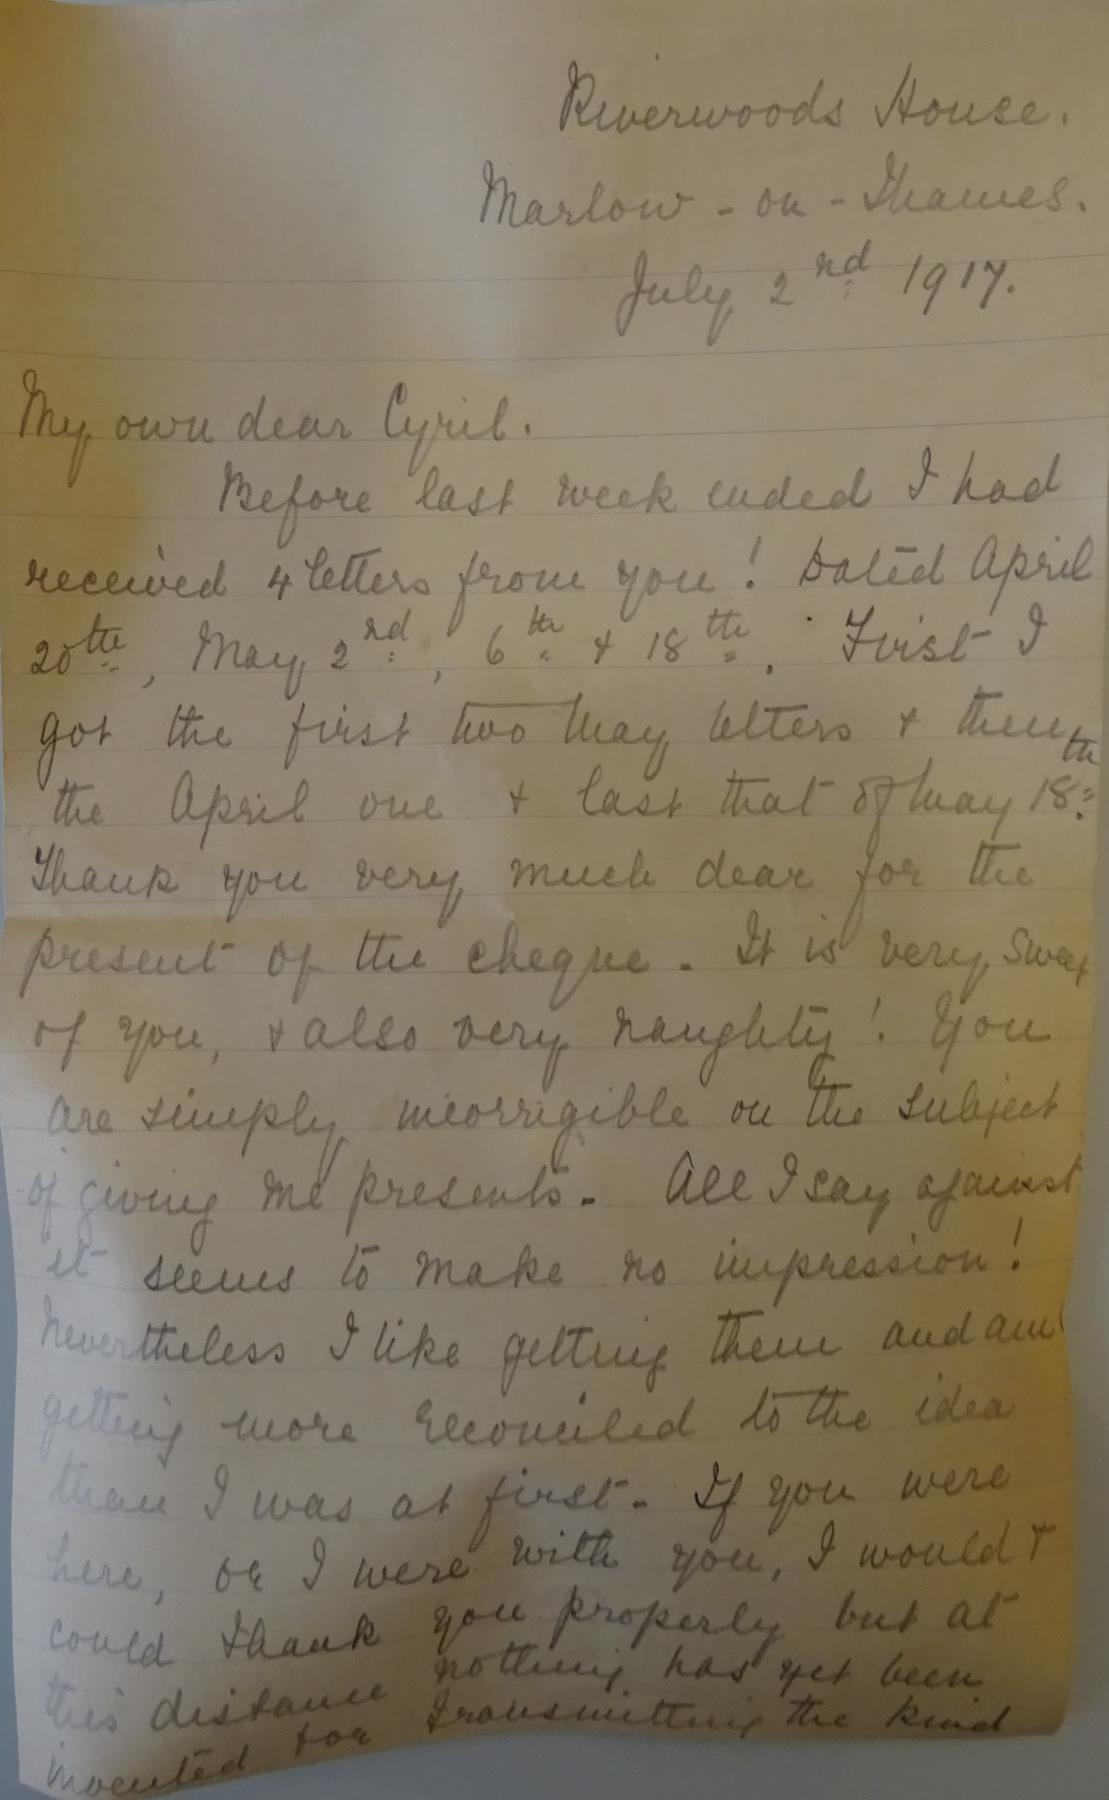 Riverwoods House.
Marlow - on - Thames.
July 2nd 1917.
My own dear Cyril.
Before last week ended I had
received 4 letters from you! Dated April
20th, May 2nd, 6th + 18th. First I
got the first two May letters + then
the April one + last that of May 18th.
Thank you very much dear for the
present of the cheque. It is very sweet
of you, + also very naughty! You
are simply incorrigible on the subject
of giving me presents. All I say against
it seems to make no impression!
Nevertheless I like getting them and am
getting more reconciled to the idea
than I was at first. If you were
here, or I were with you, I would +
could thank you properly but at
this distance nothing has yet been
invented for transmitting the kind